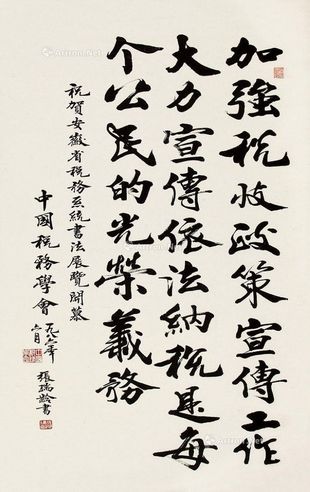 加強稅收政策宣傳工作
大力宣傳依法納稅是每
个公民的光榮義務
祝賀安徽省稅務系統書法展覽開幕
中國稅務學會
一九八六年
六月
張瑞齡書